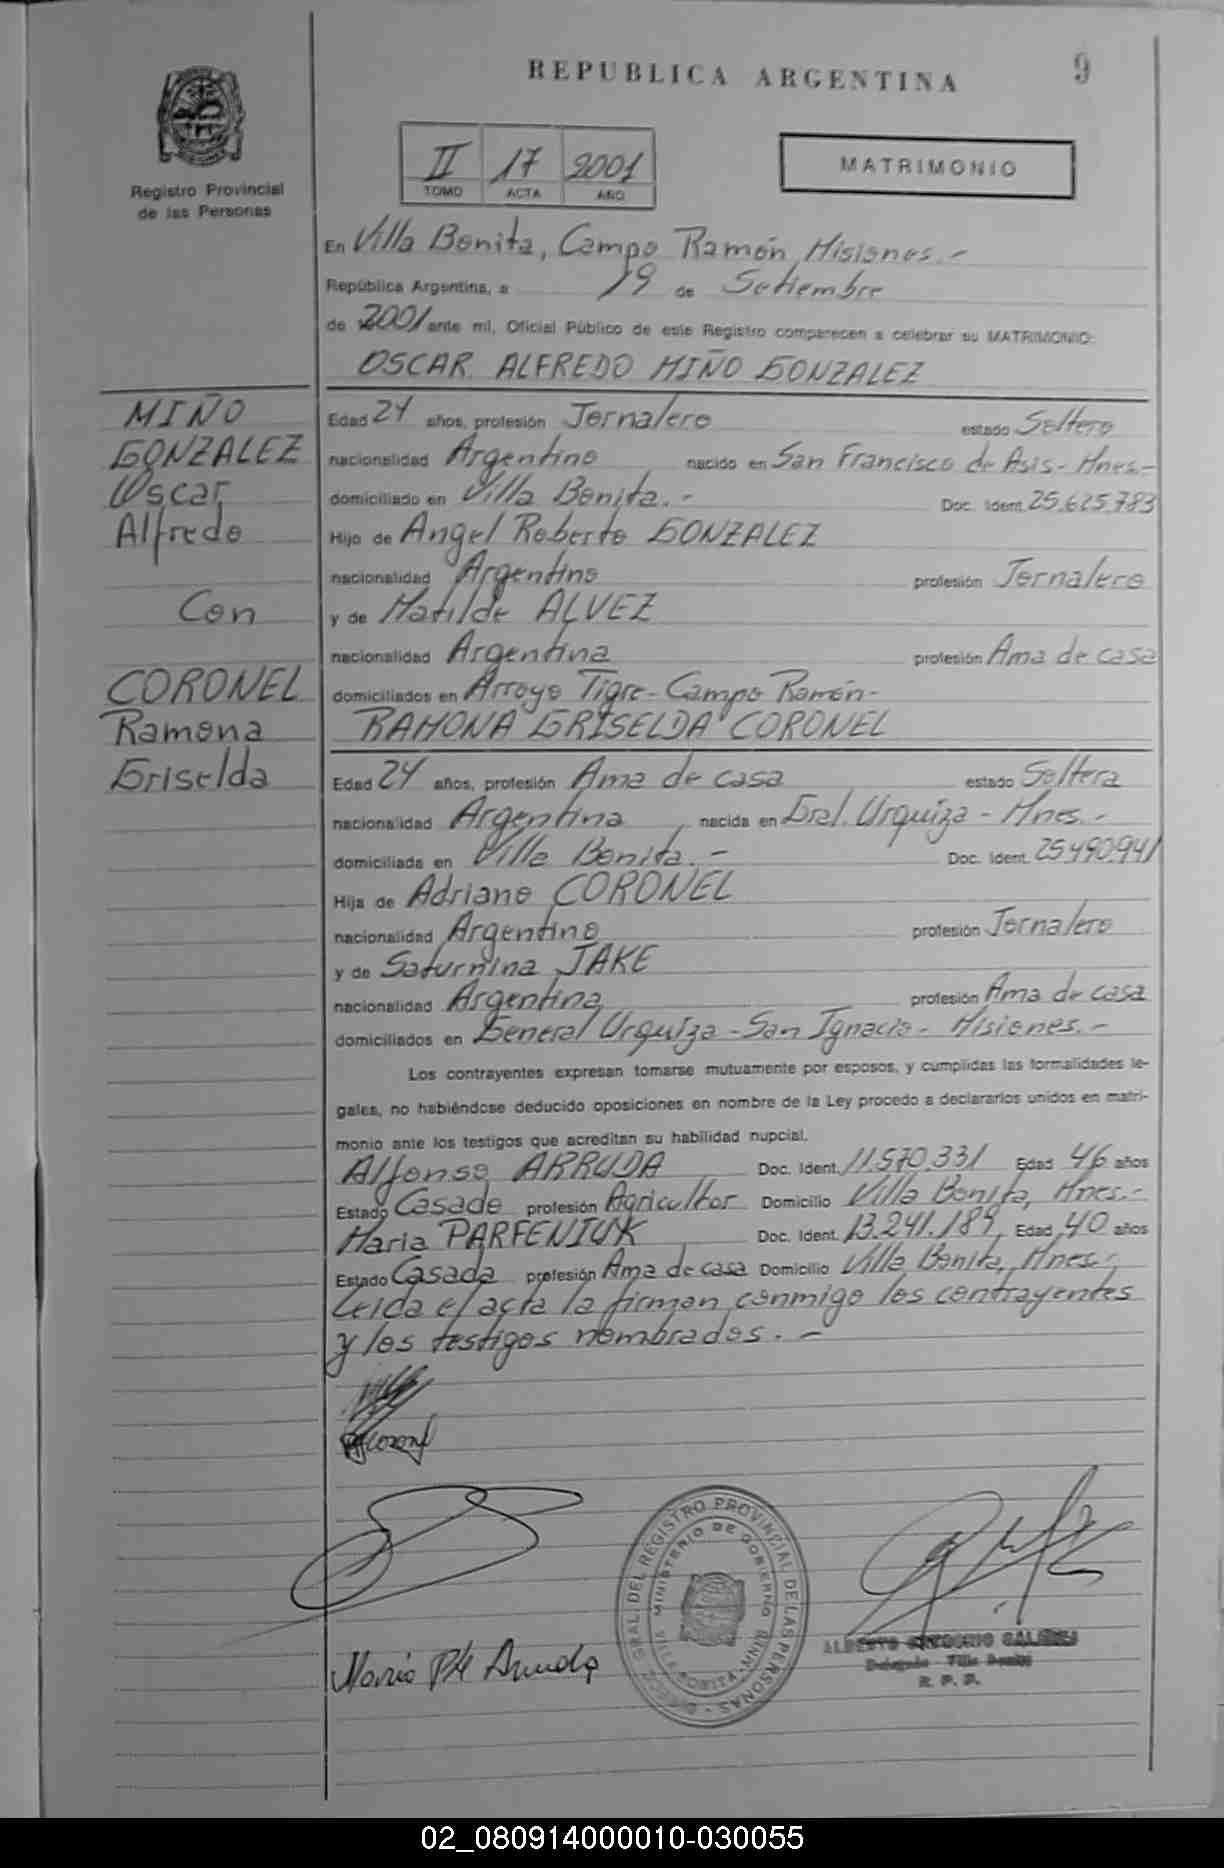 REPUBLICA ARGENTINA
9
Registro Provincial
de las Personas
II 17 2001
TOMO ACTA AÑO
MATRIMONIO
En Villa Bonita, Campo Ramón, Misiones.-
República Argentina, a 19 de Setiembre
de 2001 ante mí, Oficial Público de este Registro comparecen a celebrar su MATRIMONIO:
OSCAR ALFREDO MIÑO GONZALEZ
MIÑO
GONZALEZ
Oscar
Alfredo
Con
CORONEL
Ramona
Griselda
Edad 24 años, profesión Jornalero estado Soltero
nacionalidad Argentino nacido en San Francisco de Asis - Mnes.-
domiciliado en Villa Bonita.- Doc. Ident. 25.625.783
Hijo de Angel Roberto GONZALEZ
nacionalidad Argentino profesión Jornalero
y de Matilde ALVEZ
nacionalidad Argentina profesión Ama de casa
domiciliados en Arroyo Tigre - Campo Ramón -
RAMONA GRISELDA CORONEL
Edad 24 años, profesión Ama de casa estado Soltera
nacionalidad Argentina nacida en Gral. Urquiza - Mnes.-
domiciliada en Villa Bonita.- Doc. Ident. 25.490.941
Hija de Adriano CORONEL
nacionalidad Argentino profesión Jornalero
y de Saturnina JAKE
nacionalidad Argentina profesión Ama de casa
domiciliados en General Urquiza - San Ignacio - Misiones.-
Los contrayentes expresan tomarse mutuamente por esposos, y cumplidas las formalidades le-
gales, no habiéndose deducido oposiciones en nombre de la Ley procedo a declararlos unidos en matri-
monio ante los testigos que acreditan su habilidad nupcial.
Alfonso ARRUDA Doc. Ident. 11.570.331 Edad 46 años
Estado Casado profesión Agricultor Domicilio Villa Bonita, Mnes.-
Maria PARFENIUK Doc. Ident. 13.241.189 Edad 40 años
Estado Casada profesión Ama de casa Domicilio Villa Bonita, Mnes.-
Leida el acta la firman conmigo los contrayentes
y los testigos nombrados.-
Coronel
DIRECC. GRAL. DEL REGISTRO PROVINCIAL DE LAS PERSONAS
MINISTERIO DE GOBIERNO
VILLA BONITA
Delegado Villa Bonita
R. P. P.
02_080914000010-030055